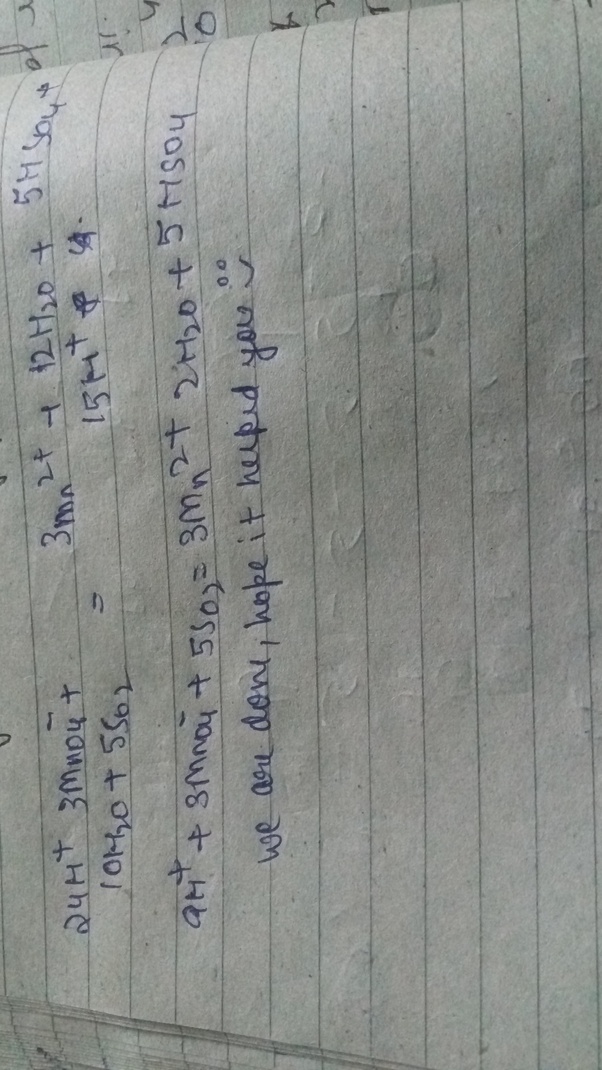 24H⁺ 3MnO4⁻ + 3Mn²⁺ + 12H2O + 5HSO4 +
10H2O + 5SO2 = 15H⁺
9H⁺ + 3MnO4⁻ + 5SO2 = 3Mn²⁺ 2H2O + 5HSO4
we are done, hope it helped you